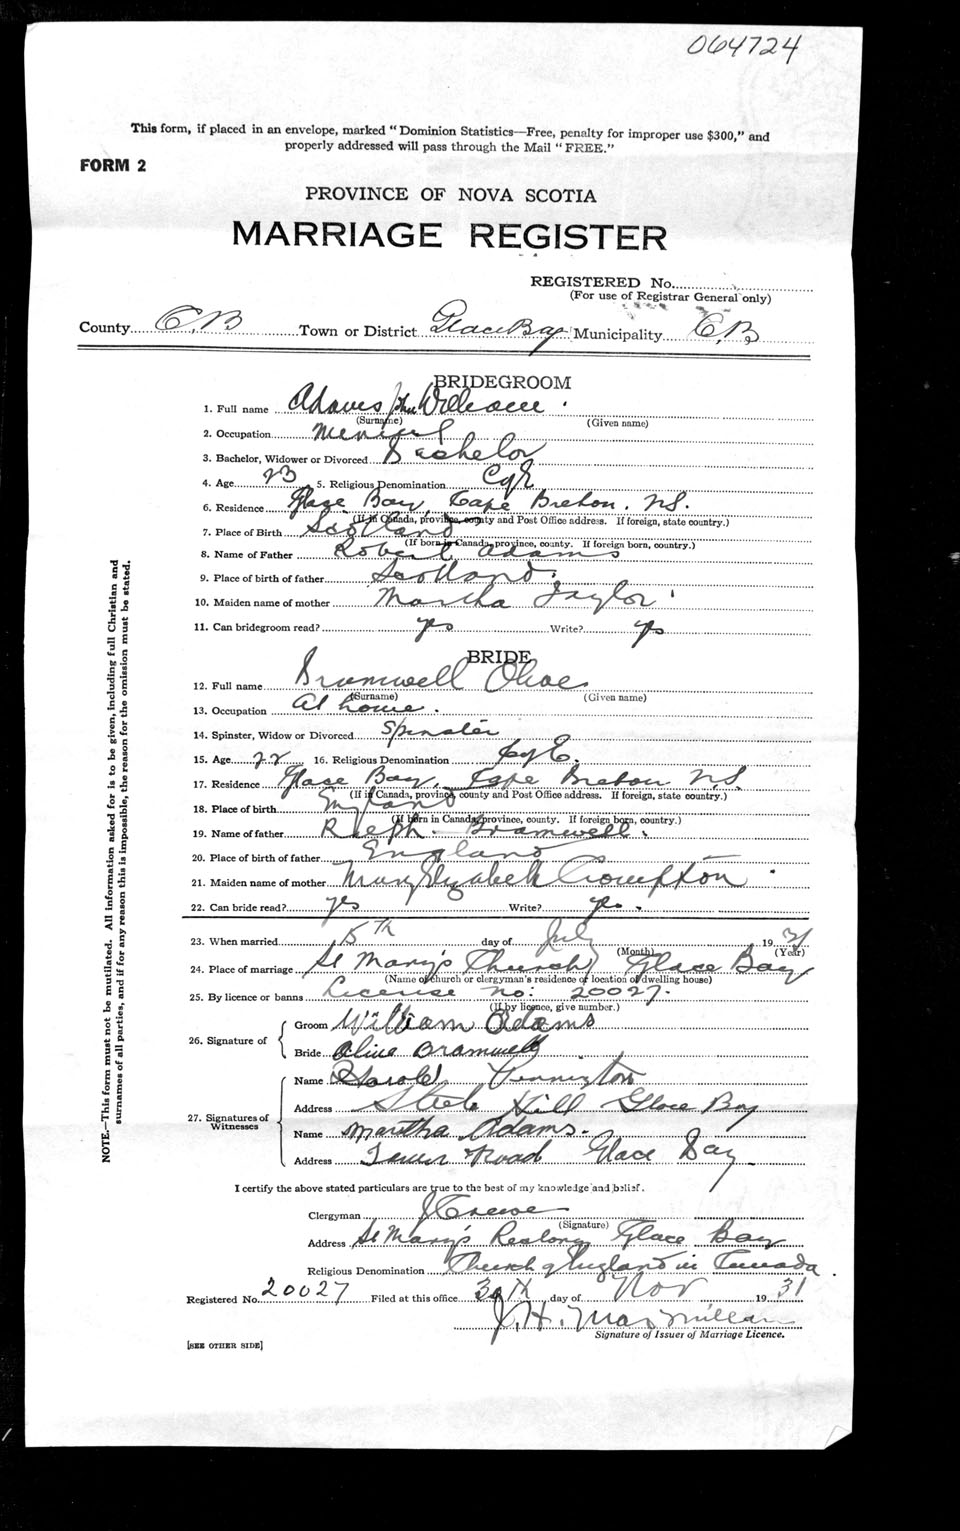 064724
This form, if placed in an envelope, marked "Dominion Statistics—Free, penalty for improper use $300," and
properly addressed will pass through the Mail "FREE."
FORM 2
PROVINCE OF NOVA SCOTIA
MARRIAGE REGISTER
REGISTERED No.
(For use of Registrar General only)
County C.B Town or District Glace Bay Municipality C.B
BRIDEGROOM
1. Full name Adams John William
(Surname) (Given name)
2. Occupation
3. Bachelor, Widower or Divorced Bachelor
4. Age 23 5. Religious Denomination C of E
6. Residence Glace Bay, Cape Breton. N.S.
(If in Canada, province, county and Post Office address. If foreign, state country.)
7. Place of Birth Scotland
(If born in Canada, province, county. If foreign born, country.)
8. Name of Father Robert Adams
9. Place of birth of father Scotland.
10. Maiden name of mother Martha Taylor
11. Can bridegroom read? yes Write? yes
BRIDE
12. Full name Bramwell Olive
(Surname) (Given name)
13. Occupation At home.
14. Spinster, Widow or Divorced Spinster
15. Age 22 16. Religious Denomination C of E.
17. Residence Glace Bay, Cape Breton N.S.
(If in Canada, province, county and Post Office address. If foreign, state country.)
18. Place of birth England
(If born in Canada, province, county. If foreign born, country.)
19. Name of father Bramwell.
20. Place of birth of father England
21. Maiden name of mother Mary Elizabeth Crompton
22. Can bride read? yes Write? yes.
23. When married 5th day of July 1931
(Month) (Year)
24. Place of marriage St Mary's Church Glace Bay
(Name of church or clergyman's residence or location of dwelling house)
25. By licence or banns License no: 20027.
(If by licence, give number.)
26. Signature of
Groom William Adams
Bride Olive Bramwell
27. Signatures of Witnesses
Name Harold Pennington
Address Hill Glace Bay
Name Martha Adams.
Address Road Glace Bay
I certify the above stated particulars are true to the best of my knowledge and belief.
Clergyman
(Signature)
Address St Mary's Rectory Glace Bay
Religious Denomination Church of England in Canada.
Registered No. 20027 Filed at this office 30th day of Nov 1931
J. H. MacMillan
Signature of Issuer of Marriage Licence.
[SEE OTHER SIDE]
NOTE.—This form must not be mutilated. All information asked for is to be given, including full Christian and
surnames of all parties, and if for any reason this is impossible, the reason for the omission must be stated.